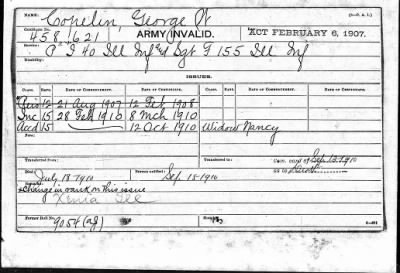 NAME.
Copelin, George W
Certificate No.
458,621 ARMY INVALID. ACT FEBRUARY 6, 1907.
Service.
I 40 Ill Inf & Sgt F 155 Ill Inf
Disability.
ISSUES.
CLASS. RATE. DATE OF COMMENCEMENT. DATE OF CERTIFICATE. CLASS. RATE. DATE OF COMMENCEMENT. DATE OF CERTIFICATE.
12 21 Aug 1907 12 Feb 1908
Inc 15 28 Feb 1910 8 Mch 1910
Accd 15 12 Oct 1910 Widow Nancy
Note:
Transferred from
Died July 18 1910 Bureau notified Sep. 15-1910
change in rank on this issue
Xenia Ill
Former Roll No.
9054